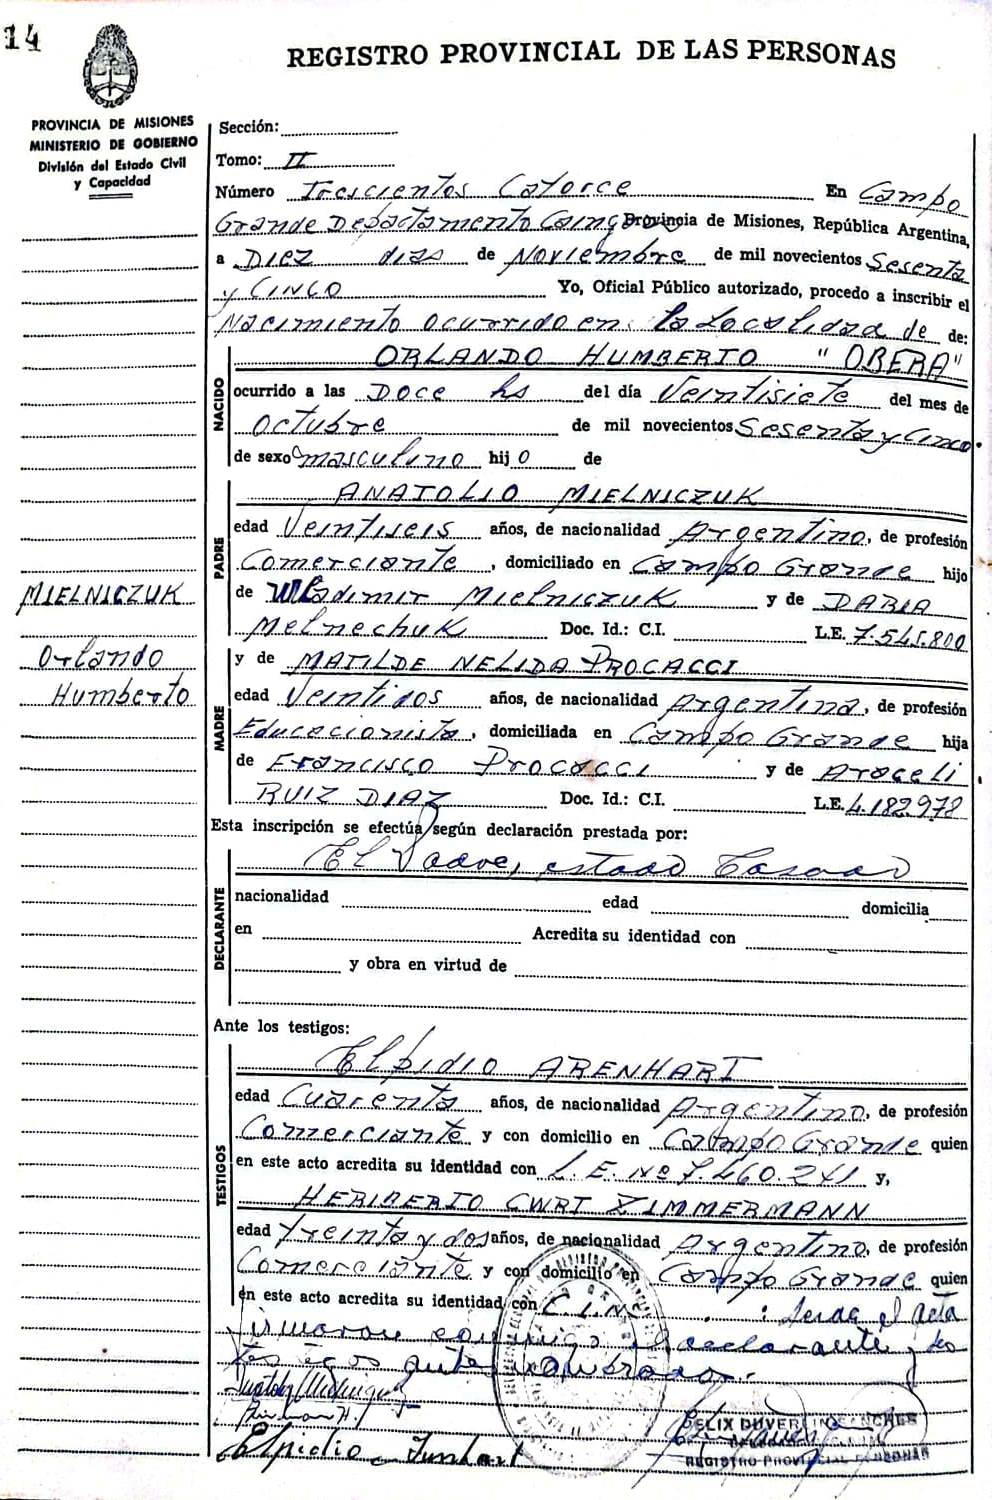 14
REGISTRO PROVINCIAL DE LAS PERSONAS
PROVINCIA DE MISIONES
MINISTERIO DE GOBIERNO
División del Estado Civil
y Capacidad
Sección:
Tomo: II
Número Trescientos Catorce En Campo
Grande Departamento Caingua Provincia de Misiones, República Argentina,
a Diez dias de Noviembre de mil novecientos Sesenta
y Cinco Yo, Oficial Público autorizado, procedo a inscribir el
Nacimiento ocurrido en la Localidad de de:
NACIDO
ORLANDO HUMBERTO "OBERA"
ocurrido a las Doce hs del día Veintisiete del mes de
Octubre de mil novecientos Sesenta y Cinco.
de sexo masculino hijo de
PADRE
ANATOLIO MIELNICZUK
edad Veintiseis años, de nacionalidad Argentino, de profesión
Comerciante, domiciliado en Campo Grande hijo
de Wladimir Mielniczuk y de DARIA
Melnechuk Doc. Id.: C.I. L.E. 7.545.800
MIELNICZUK
Orlando
Humberto
MADRE
y de MATILDE NELIDA PROCACCI
edad Veintidos años, de nacionalidad Argentina, de profesión
Educacionista, domiciliada en Campo Grande hija
de Francisco Procacci y de Araceli
RUIZ DIAZ Doc. Id.: C.I. L.E. 4.182.978
Esta inscripción se efectúa según declaración prestada por:
DECLARANTE
El Padre, estado Casado
nacionalidad edad domicilia
en Acredita su identidad con
y obra en virtud de
Ante los testigos:
TESTIGOS
Elpidio ARENHART
edad Cuarenta años, de nacionalidad Argentino, de profesión
Comerciante y con domicilio en Campo Grande quien
en este acto acredita su identidad con L.E. Nº 7.460.241 y,
HERIBERTO CWRT ZIMMERMANN
edad Treinta y dos años, de nacionalidad Argentino, de profesión
Comerciante y con domicilio en Campo Grande quien
en este acto acredita su identidad con C.I. Nº : Leida el acta
firmaron conmigo el declarante y los
testigos antes nombrados.
Elpidio
FELIX DUVER SANCHES
REGISTRO PROVINCIAL PERSONAS